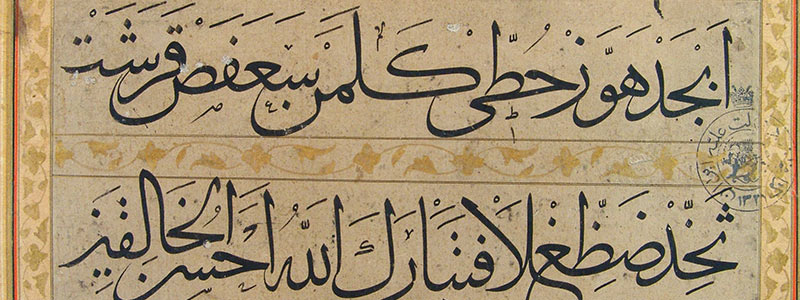 اَبْجَدْ هَوَّزْ حُطِّی کَلَمَنْ سَعَفَصْ قَرَشَتْ
ثَخَّذْ ضَظِّغْ لَا فتبارك الله احسن الخالقين